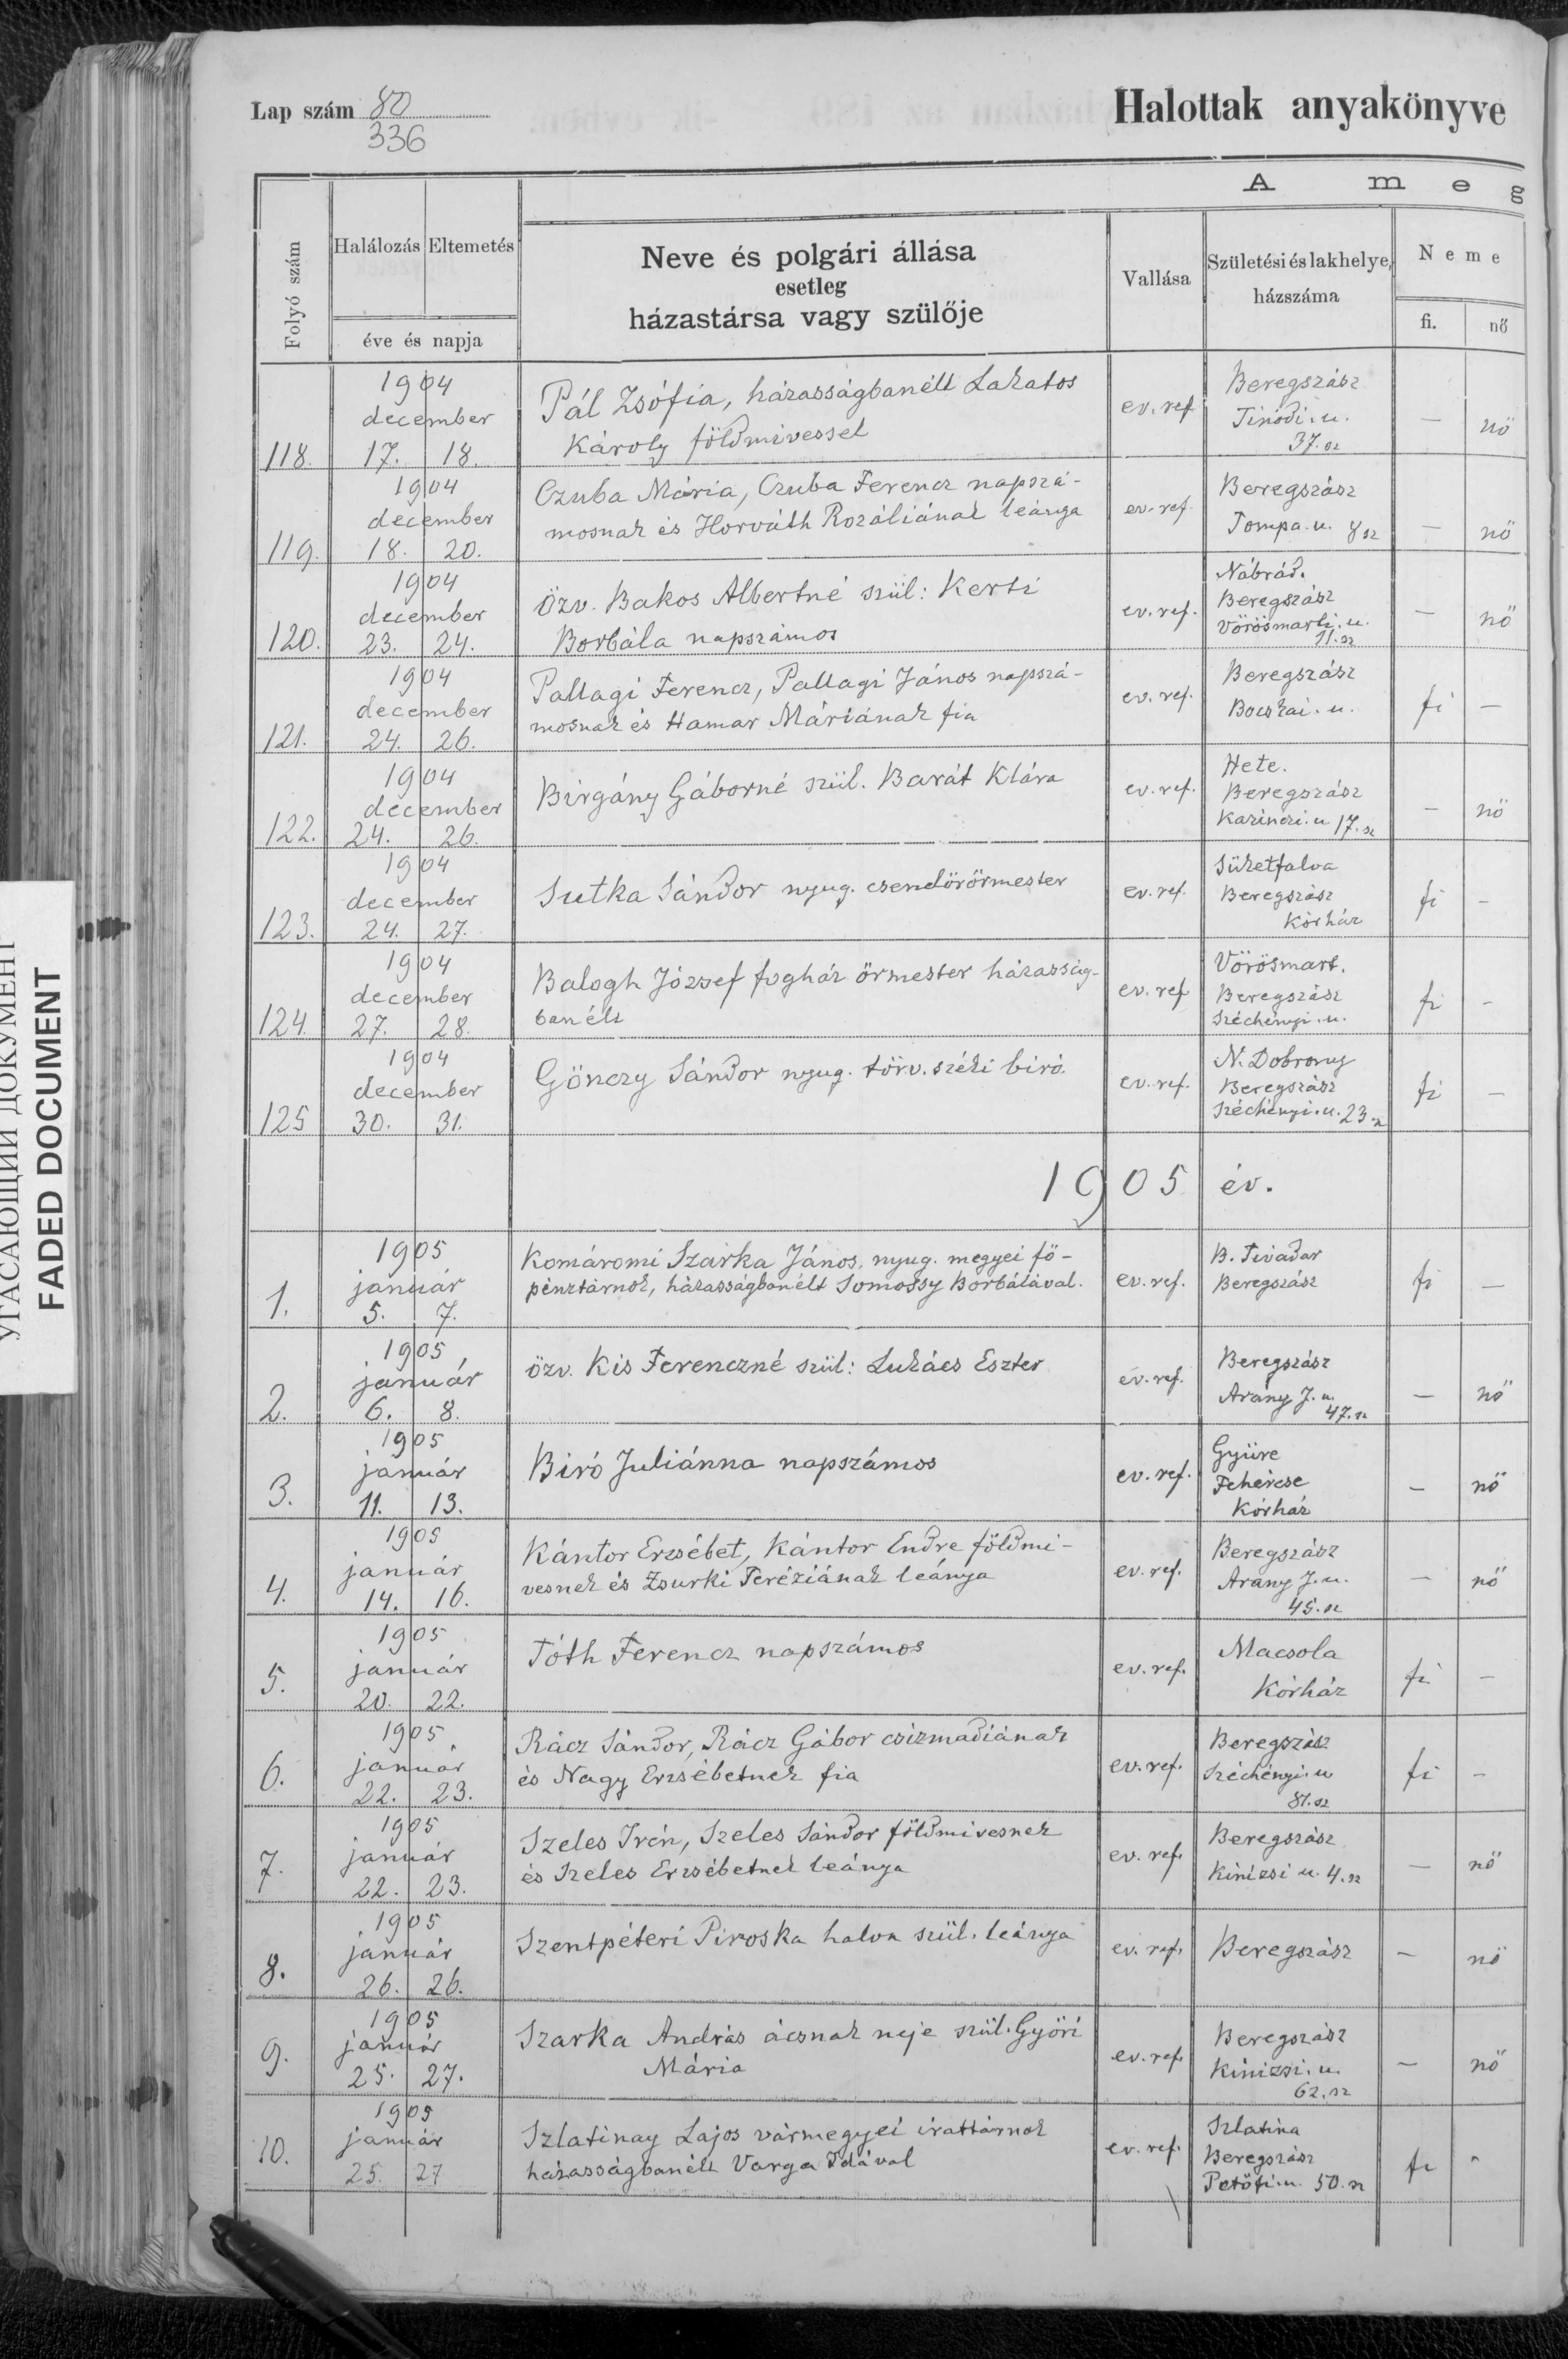 Lap szám 80
336
Halottak anyakönyve
A m e g
Folyó szám
Halálozás Eltemetés
éve és napja
Neve és polgári állása
esetleg
házastársa vagy szülője
Vallása
Születési és lakhelye,
házszáma
Neme
fi. nő
1904
december
118. 17. 18.
Pál Zsófia, házasságbanélt Lakatos
Károly földmivessel
ev. ref.
Beregszász
Tinódi. u.
37. sz
— nö
1904
december
119. 18. 20.
Czuba Mária, Czuba Ferencz napszá-
mosnak és Horváth Rozáliának leánya
ev. ref.
Beregszász
Tompa. u. 8 sz
— nö
1904
december
120. 23. 24.
Özv. Bakos Albertné szül: Kerti
Borbála napszámos
ev. ref.
Nábrád.
Beregszász
Vörösmarti. u.
11. sz
— nö
1904
december
121. 24. 26.
Pallagi Ferencz, Pallagi János napszá-
mosnak és Hamar Máriának fia
ev. ref.
Beregszász
Bocskai. u.
fi —
1904
december
122. 24. 26.
Birgány Gáborné szül. Barát Klára
ev. ref.
Hete.
Beregszász
Kazinczi. u 17. sz
— nö
1904
december
123. 24. 27.
Sutka Sándor nyug. csendörörmester
ev. ref.
Süketfalva
Beregszász
Kórház
fi -
1904
december
124. 27. 28.
Balogh József fogház örmester házasság-
banélt
ev. ref
Vörösmart.
Beregszász
Széchényi. u.
fi -
1904
december
125 30. 31.
Gönczy Sándor nyug. törv. széki biró.
ev. ref.
N. Dobrony
Beregszász
Széchényi. u. 23. sz
fi —
1905 év.
1905
január
1. 5. 7.
Komáromi Szarka János, nyug. megyei fö-
pénztárnok, házasságbanélt Somossy Borbálával.
ev. ref.
B. Tivadar
Beregszász
fi —
1905
január
2. 6. 8.
özv. Kis Ferenczné szül: Lukács Eszter
ev. ref.
Beregszász
Arany J. u.
47. sz
— nö
1905
január
3. 11. 13.
Biró Juliánna napszámos
ev. ref.
Gyüre
Fehércse
Kórház
— nö
1905
január
4. 14. 16.
Kántor Erzsébet, Kántor Endre földmi-
vesnek és Zsurki Teréziának leánya
ev. ref.
Beregszász
Arany J. u.
45. sz
— nö
1905
január
5. 20. 22.
Tóth Ferencz napszámos
ev. ref.
Macsola
Kórház
fi -
1905
január
6. 22. 23.
Rácz Sándor, Rácz Gábor csizmadiának
és Nagy Erzsébetnek fia
ev. ref.
Beregszász
Széchényi. u
81. sz
fi -
1905
január
7. 22. 23.
Szeles Irén, Szeles Sándor földmivesnek
és Szeles Erzsébetnek leánya
ev. ref.
Beregszász
Kinizsi u. 4. sz
— nö
1905
január
8. 26. 26.
Szentpéteri Piroska halva szül. leánya
ev. ref.
Beregszász
— nö
1905
január
9. 25. 27.
Szarka András ácsnak neje szül. Györi
Mária
ev. ref.
Beregszász
Kinizsi. u.
62. sz
— nö
1905
január
10. 25. 27
Szlatinay Lajos vármegyei irattárnok
házasságbanélt Varga Idával
ev. ref.
Szlatina
Beregszász
Petöfi. u. 50. sz
fi -
УГАСАЮЩИЙ ДОКУМЕНТ
FADED DOCUMENT